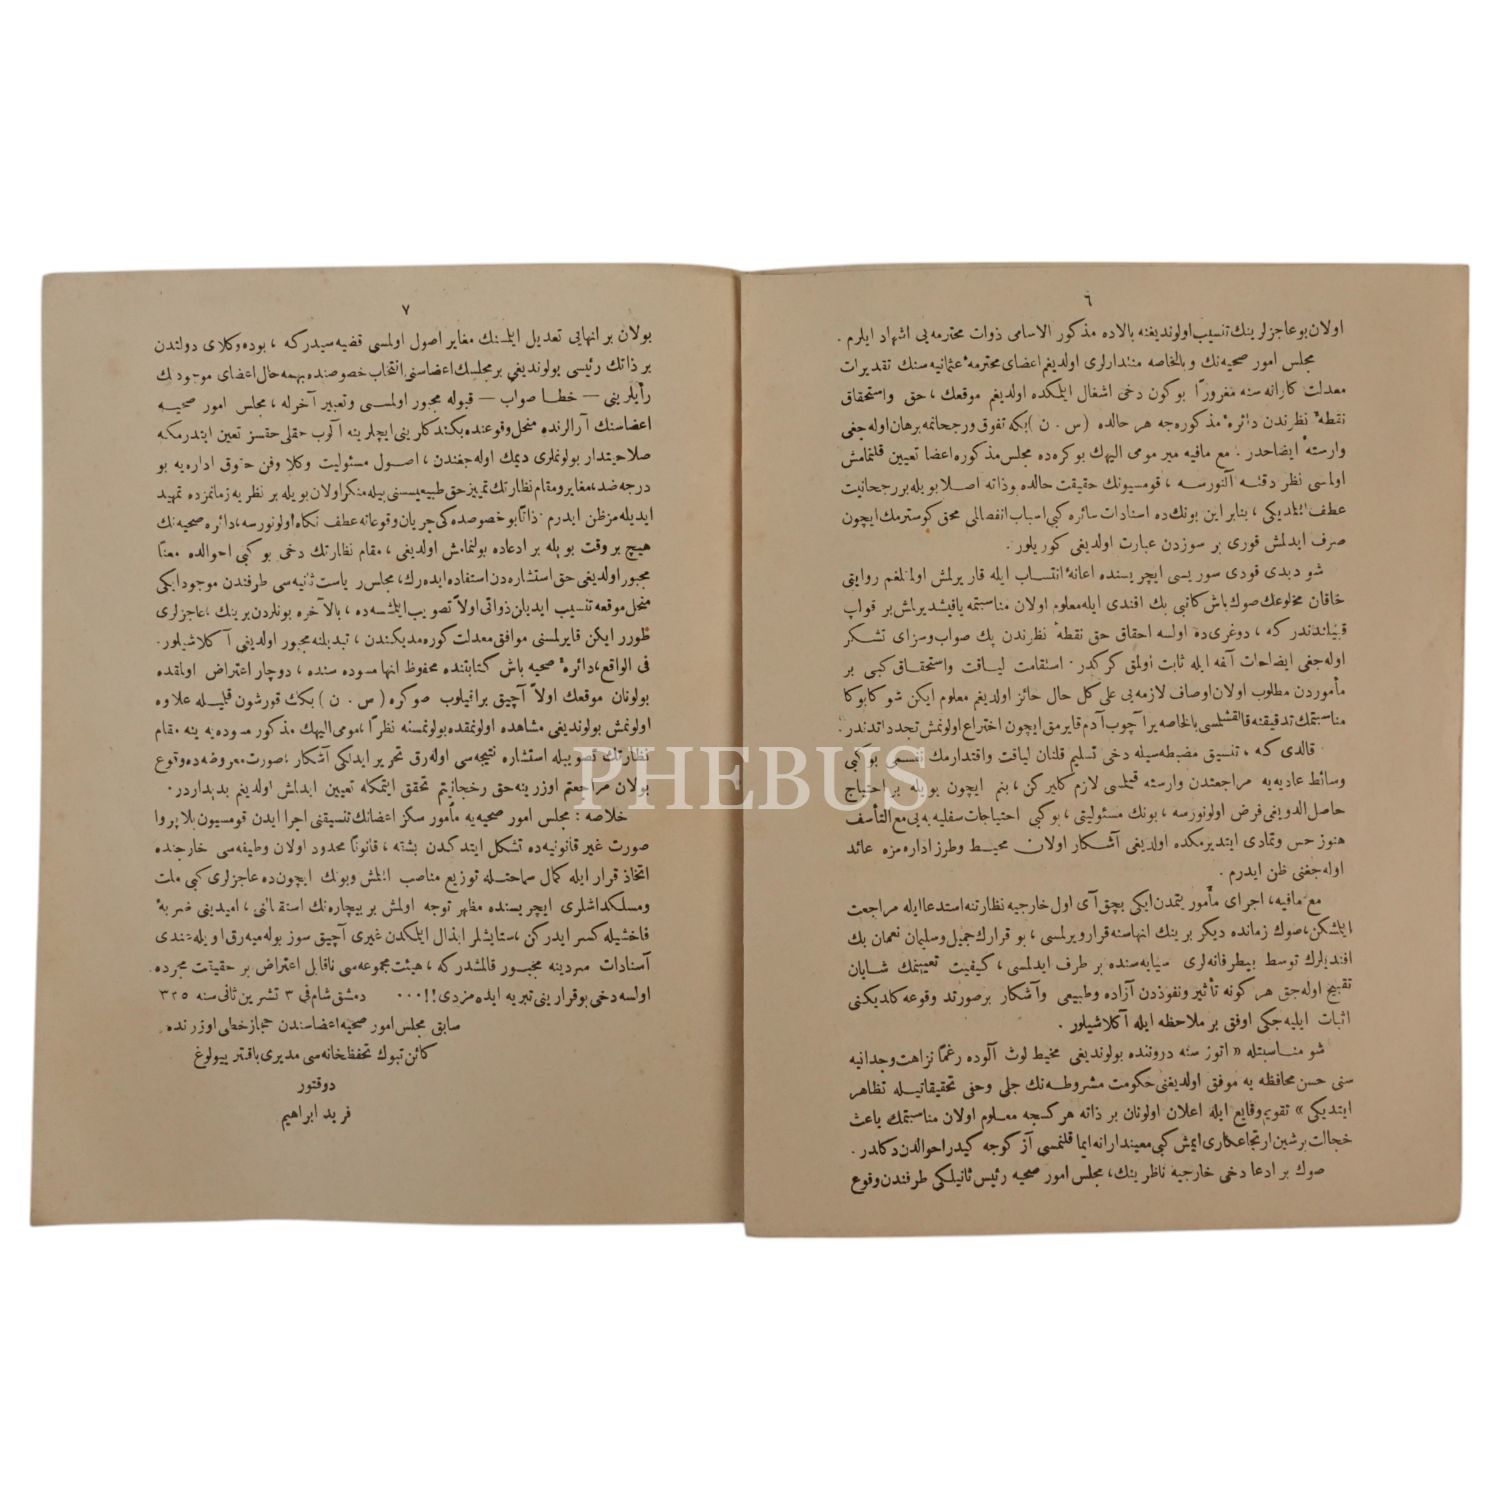 ٦
اولان بو عاجزلرينك تنسيب اولونديغنه بالاده مذكور الاسامى ذوات محترمه يى اشهاد ايلرم .
مجلس امور صحيه نك و بالخاصه متدارلرى اولديغم اعضاى محترمهٔ عثمانيه سنك تقديرات
معدلت كارانه سنه مغروراً بوكون دخى اشغال ايلمكده اولديغم موقعك ، حق واستحقاق
نقطهٔ نظرندن دائرهٔ مذكوره جه هر حالده (س . ن ) بكه تفوق ورجحانمه برهان اوله جغى
وارستهٔ ايضاحدر . مع مافيه مير مومى اليهك بوكره ده مجلس مذكوره اعضا تعيين قلنمامش
اولماسى نظر دقته آلنورسه ، قوميسونك حقيقت حالده وذاته اصلا بويله بر رجحانيت
عطف ايتمديكى ، بنابراين بونك ده اسنادات سائره كبى اسباب انفصالى محق كوسترمك ايچون
صرف ايدلمش قورى بر سوزدن عبارت اولديغى كوريلور .
شو ديدى قودى سوريسى ايچريسنده اعانهٔ انتساب ايله قاريرلمش اولمانلغم روايتى
خاقان مخلوعك صوك باش كاتبى بك افندى ايله معلوم اولان مناسبتمه ياقيشديرلمش بر قواپ
قبيلندندر كه ، دوغرى ده اولسه احقاق حق نقطهٔ نظرندن پك صواب وسزاى تشكر
اوله جغى ايضاحات آنفه ايله ثابت اولمق كركدر . استقامت لياقت واستحقاق كبى بر
مأموردن مطلوب اولان اوصاف لازمه يى على كل حال حائز اولديغم معلوم ايكن شو كا بوكا
مناسبتمك تدقيقنه قالقشلمسى بالخاصه يرا آچوب آدم قايرمق ايچون اختراع اولونمش تجدداتدندر .
قالدى كه ، تنسيق مضبطه سيله دخى تسليم قلنان لياقت واقتدارمك تقسمى بوكبى
وسائط عاديه يه مراجعتدن وارسته قيلمسى لازم كلير كن ، بنم ايچون بويله بر احتياج
حاصل الدويغى فرض اولونورسه ، بونك مسئوليتى ، بوكبى احتياجات سفليه يى مع التأسف
هنوز حس وتمادى ايتديرمكده اولديغى آشكار اولان محيط وطرز اداره مزه عائد
اوله جغنى ظن ايدرم .
مع مافيه ، اجراى مأموريتمدن ايكى بچق آى اول خارجيه نظارتنه استدعا ايله مراجعت
ايلمشكن ، صوك زمانده ديكر برينك انهاسنه قرار ويرلمسى ، بو قرارك جميل وسليمان نعمان بك
افنديلرك توسط بيطرفانه لرى سيابه سنده بر طرف ايدلمسى ، كيفيت تعيينمك شايان
تقبيح اوله جق هر كونه تأثير ونفوذدن آزاده وطبيعى وآشكار بر صورتد وقوعه كلديكنى
اثبات ايليه جكى اوفق بر ملاحظه ايله آكلاشيلور .
شو مناسبتله « اتوز سنه دروننده بولونديغى محيط لوث آلوده رغماً نزاهت وجدانيه
سنى حسن محافظه يه موفق اولديغنى حكومت مشروطه نك جلى وخفى تحقيقاتيله تظاهر
ايتديكى » تقويم وقايع ايله اعلان اولونان بر ذاته هر كسجه معلوم اولان مناسبتمك باعث
خجالت بر شين ارتجاعكارى ايمش كبى معيندارانه ايما قلنمسى آز كوجه كيدر احوالدن دكلدر .
صوك بر ادعا دخى خارجيه ناظرينك ، مجلس امور صحيه رئيس ثانيلكى طرفندن وقوع
٧
بولان بر انهايى تعديل ايلمسنك مغاير اصول اولمسى قضيه سيدر كه ، بوده وكلاى دولتدن
بر ذاتك رئيسى بولونديغى بر مجلسك اعضاسنى انتخاب خصوصنده بهمه حال اعضاى موجودنك
رأيلرينى — خطا صواب — قبوله مجبور اولمسى وتعبير آخرله ، مجلس امور صحيه
اعضاسنك آرالرنده منحل وقوعنده بكندكلرينى ايچلرينه آلوب حقلى حقسز تعين ايتدرمكه
صلاحيتدار بولونملرى ديمك اوله جغندن ، اصول مسئوليت وكلا وفن حقوق اداره يه بو
درجه ضد ، مغاير ومقام نظارتك تمييز حق طبيعيسنى بيله منكر اولان بويله بر نظريه زمانمزده تمهيد
ايديله مزظن ايدرم . ذاتاً بو خصوصده كى جريان وقوعاته عطف نكاه اولونورسه ، دائره صحيه نك
هيچ بر وقت بويله بر ادعاده بولنمامش اولديغى ، مقام نظارتك دخى بوكبى احوالده معناً
مجبور اولديغى حق استشاره دن استفاده ايده رك ، مجلس رياست ثانيه سى طرفندن موجود ايكى
منحل موقعه تنسيب ايديلن ذواتى اولاً تصويب ايلمشسه ده ، بالآخره بونلردن برينك ، عاجزلرى
طورر ايكن قايرلمسنى موافق معدلت كوره مديكندن ، تبديلنه مجبور اولديغى آكلاشيلور .
فى الواقع ، دائرهٔ صحيه باش كتابتنده محفوظ انها مسوده سنده ، دوچار اعتراض اولمقده
بولونان موقعك اولاً آچيق براقيلوب صوكره (س . ن ) بكك قورشون قلميله علاوه
اولونمش بولونديغى مشاهده اولونمقده بولونمسنه نظراً ، مومى اليهك مذكور مسوده يه ينه مقام
نظارتك تصويبله استشاره نتيجه سى اوله رق تحرير ايدلكى آشكار ، صورت معروضه ده وقوع
بولان مراجعتم اوزرينه حق رجحانيتم تحقق ايتمكله تعيين ايدلمش اولديغم بديداردر .
خلاصه : مجلس امور صحيه يه مأمور سكز اعضانك تنسيقنى اجرا ايدن قوميسون بلا پروا
صورت غير قانونيه ده تشكل ايتدكدن بشقه ، قانوناً محدود اولان وظيفه سى خارجنده
اتخاذ قرار ايله كمال سماحتله توزيع مناصب ايتمش وبونك ايچون ده عاجزلرى كبى ملت
ومسلكداشلرى ايچريسنده مظهر توجه اولمش بر بيچاره نك استقبالنى ، اميدينى ضربهٔ
فاخشيله كسر ايدركن ، ستايشلر ابذال ايلمكدن غيرى آچيق سوز بوله ميه رق اويله جندى
آسنادات سردينه مجبور قالمشدر كه ، هيئت مجموعه سى ناقابل اعتراض بر حقيقت مجرده
اولسه دخى بو قرارينى تبريه ايده مزدى !! ٠٠٠ دمشق شام فى ٣ تشرين ثانى سنه ٣٢٥
سابق مجلس امور صحيه اعضاسندن حجاز خطى اوزرنده
كائن تبوك تحفظخانه سى مديرى باقتريولوغ
دوقتور
فريد ابراهيم
PHEBUS